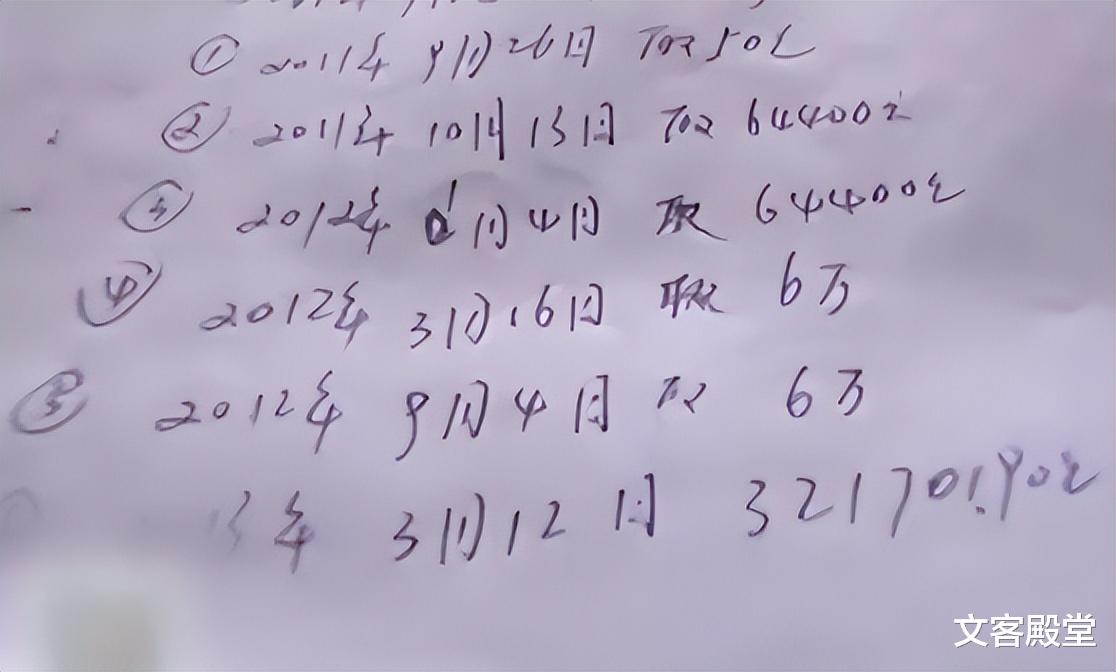 ① 2011年9月26日 取50元
② 2011年10月13日 取64400元
③ 2012年1月4日 取64400元
④ 2012年3月16日 取6万
⑤ 2012年9月4日 取6万
13年3月12日 321701.90元
文客殿堂